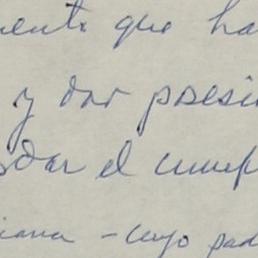 mente que ha
y dar posesi
dar el cump
iana - cuyo pad